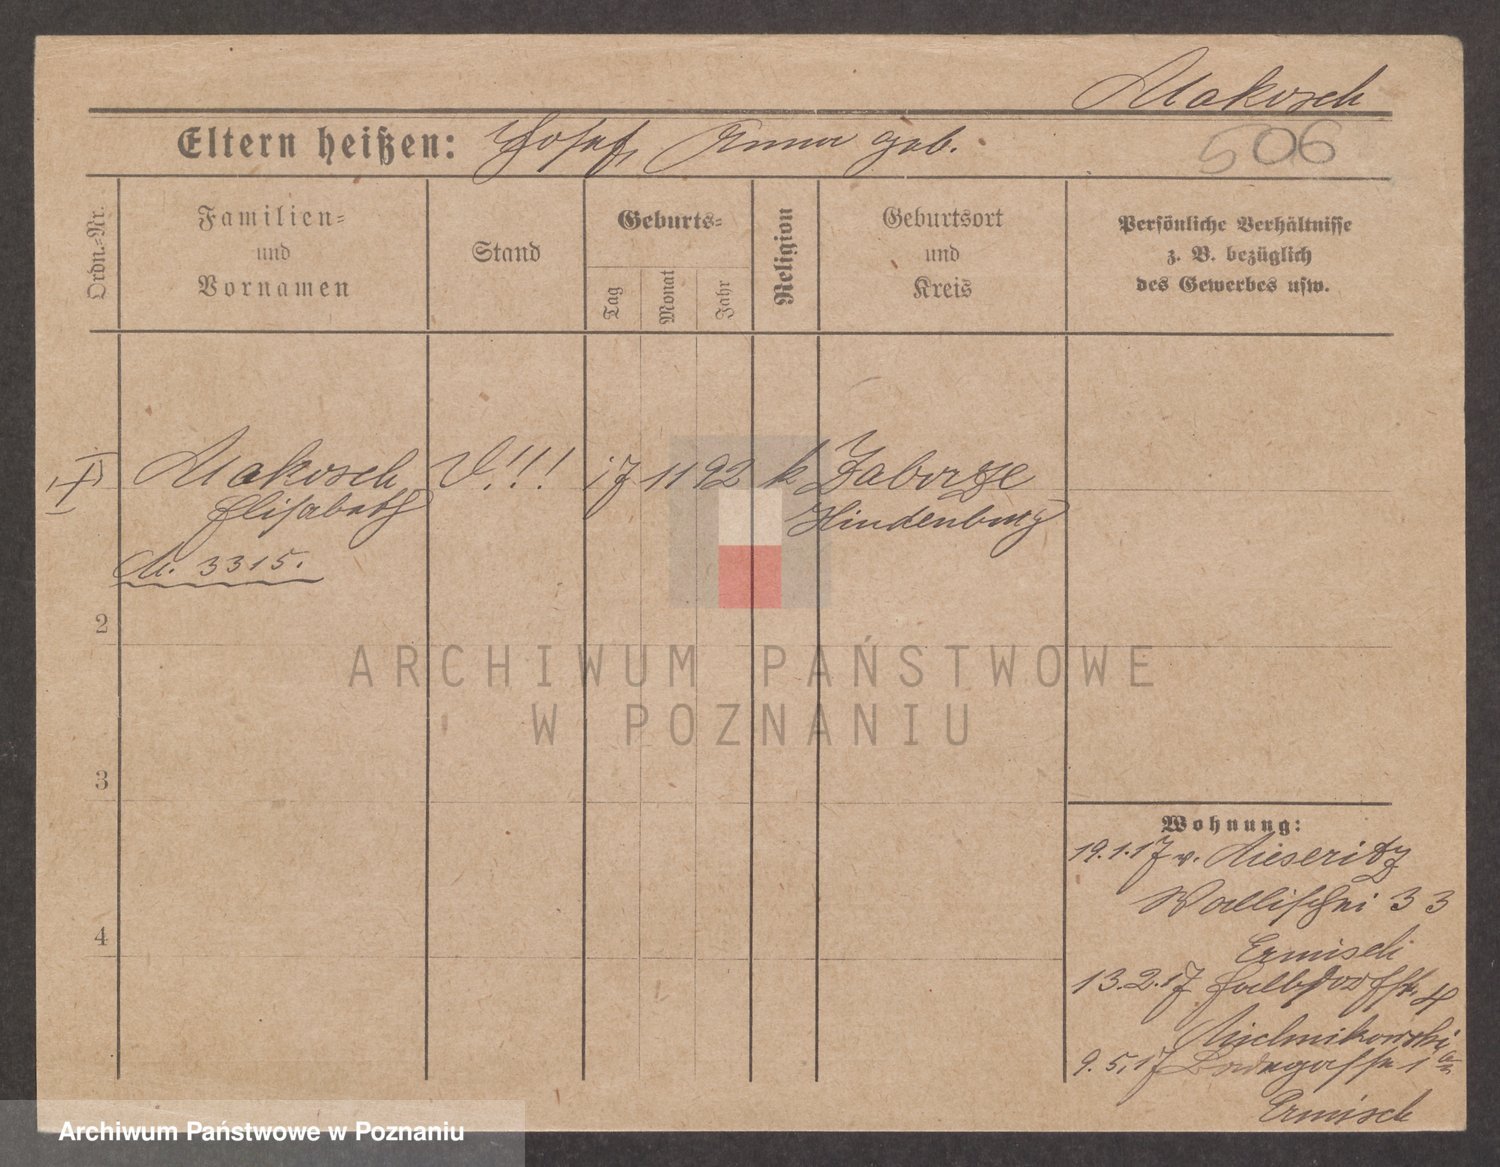 Makosch
Eltern heißen: Josef Anna geb.
506
Ordn.-Nr.
Familien-
und
Vornamen
Stand
Geburts-
Tag
Monat
Jahr
Religion
Geburtsort
und
Kreis
Persönliche Verhältnisse
z. B. bezüglich
des Gewerbes usw.
Makosch V!!! 17 11 92 k Zaborze
Elisabeth Hindenburg
M. 3315.
2
3
4
Wohnung:
19.1.17 v. Meseritz
Wallischei 33
Ermisch
13.2.17 Halbdorfstr. 4
9.5.17 Badegasse 1a
Ermisch
ARCHIWUM PAŃSTWOWE
W POZNANIU
Archiwum Państwowe w Poznaniu